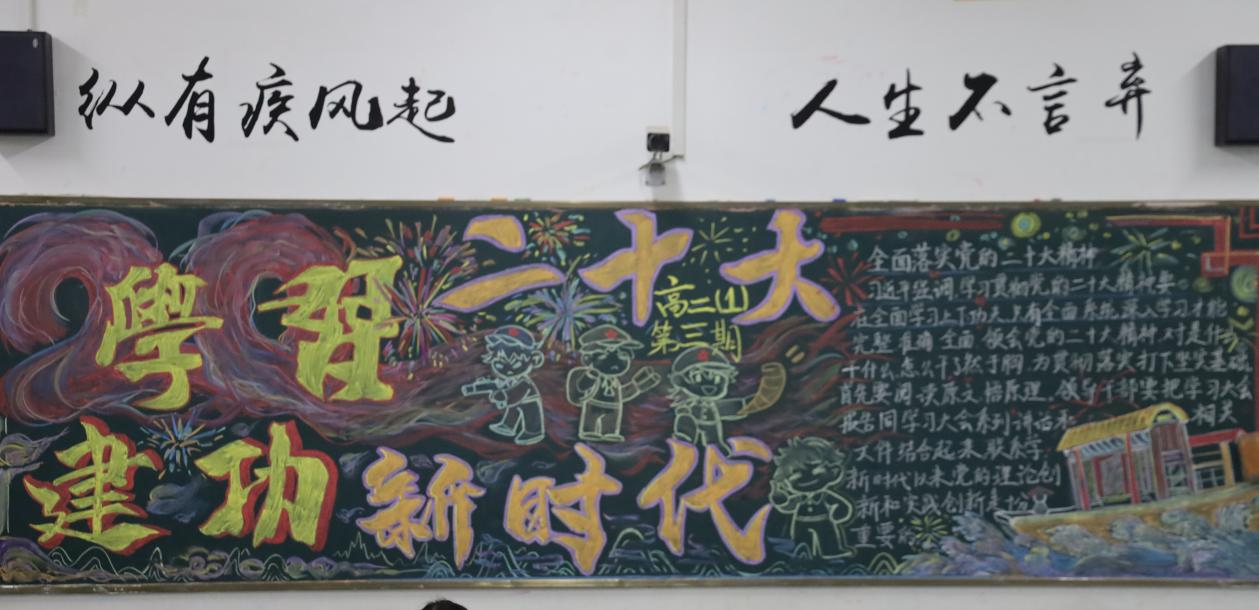 纵有疾风起
人生不言弃
學習二十大
高二(1)
第三期
建功新时代
全面落实党的二十大精神
习近平强调学习贯彻党的二十大精神要
在全面学习上下功夫只有全面系统深入学习才能
完整准确全面领会党的二十大精神对是什么
干什么怎么干了然于胸为贯彻落实打下坚实基础
首先要阅读原文悟原理领导干部要把学习大会
报告同学习大会系列讲话 相关
文件结合起来联系学
新时代以来党的理论创
新和实践创新
重要